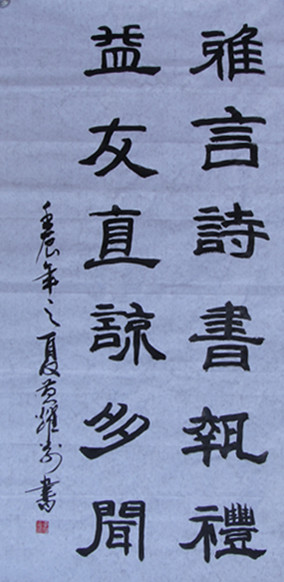 雅言詩書執禮
益友直諒多聞
壬辰年之夏黄耀
書